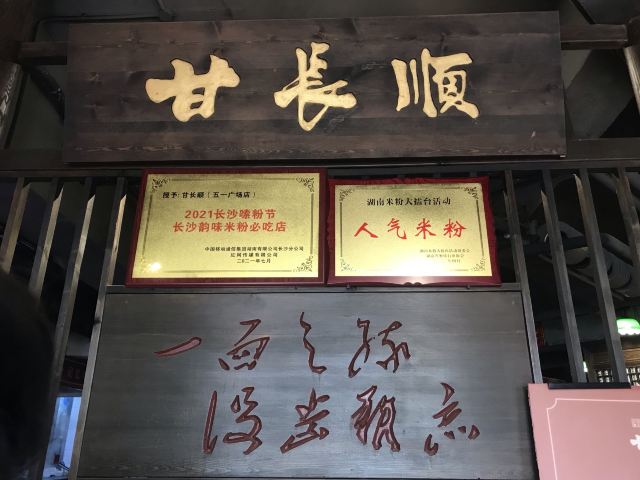 甘長順
授予:甘长顺(五一广场店)
2021长沙嗦粉节
长沙韵味米粉必吃店
中国移动通信集团湖南有限公司长沙分公司
红网传媒有限公司
二〇二一年七月
湖南米粉大擂台活动
人气米粉
一面之缘
没齿